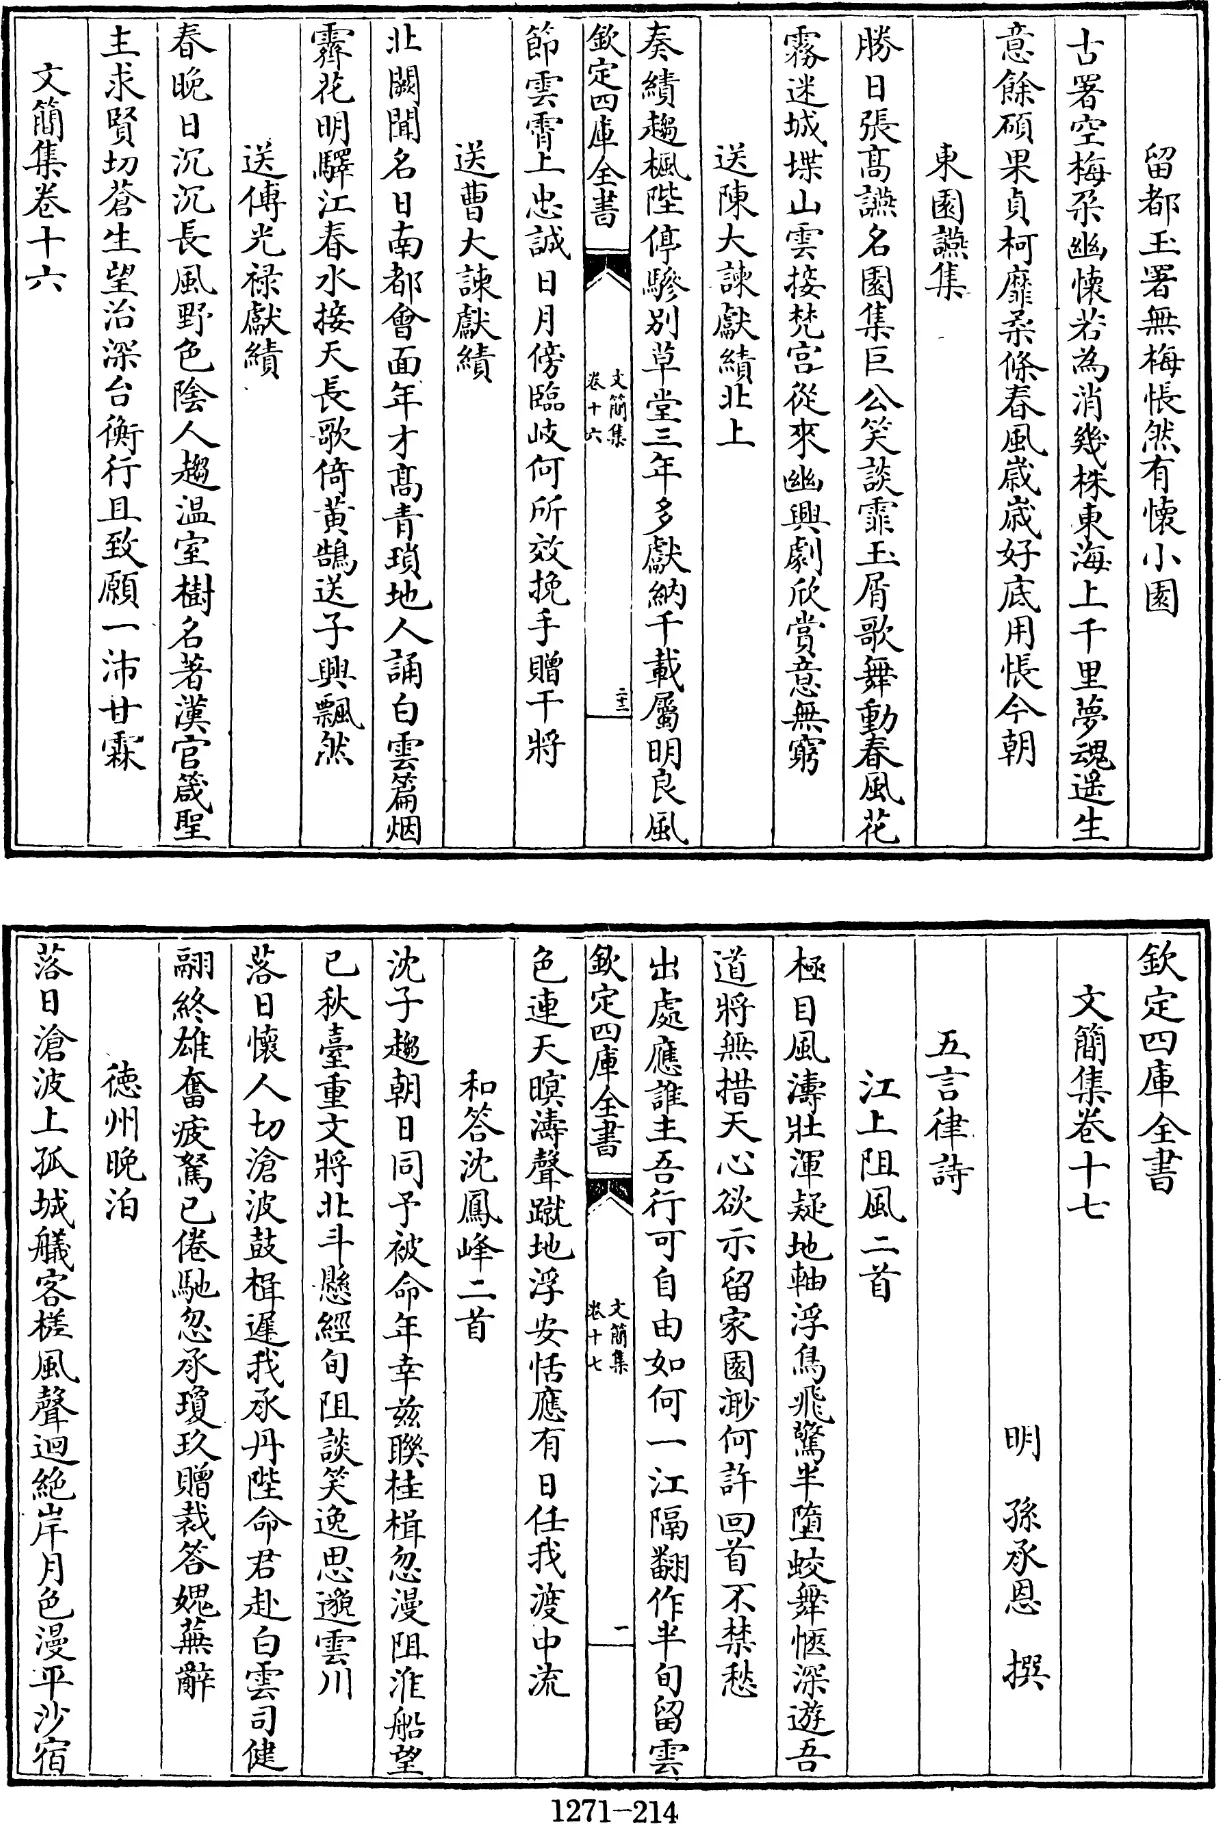 留都玉署無梅悵然有懐小園
古署空梅朶幽懐若為消幾株東海上千里夢魂遥生
意餘碩果貞柯靡柔條春風歳歳好底用悵今朝
東園讌集
勝日張髙讌名園集巨公笑談霏玉屑歌舞動春風花
霧迷城堞山雲接梵宫從來幽興劇欣賞意無窮
送陳大諫獻績北上
奏績趨楓陛停驂别草堂三年多獻納千載屬明良風
欽定四庫全書
文簡集
卷十六
二十三
節雲霄上忠誠日月傍臨岐何所效挽手贈干將
送曹大諫獻績
北闕聞名日南都會面年才髙青瑣地人誦白雲篇烟
霽花明驛江春水接天長歌倚黄鵠送子興飄然
送傅光禄獻績
春晩日沉沉長風野色陰人趨温室樹名著漢官箴聖
主求賢切蒼生望治深台衡行且致願一沛甘霖
文簡集卷十六
欽定四庫全書
文簡集卷十七
明 孫承恩 撰
五言律詩
江上阻風二首
極目風濤壯渾疑地軸浮鳥飛驚半墮蛟舞愜深遊吾
道將無措天心欲示留家園渺何許回首不禁愁
出處應誰主吾行可自由如何一江隔翻作半旬留雲
色連天暝濤聲蹴地浮安恬應有日任我渡中流
欽定四庫全書
文簡集
卷十七
一
和答沈鳳峰二首
沈子趨朝日同予被命年幸兹聯桂楫忽漫阻淮船望
已秋臺重文將北斗懸經旬阻談笑逸思邈雲川
落日懐人切滄波鼓楫遲我承丹陛命君赴白雲司健
翮終雄奮疲駑已倦馳忽承瓊玖贈裁答媿蕪辭
徳州晩泊
落日滄波上孤城艤客槎風聲迴絶岸月色漫平沙宿
1271-214